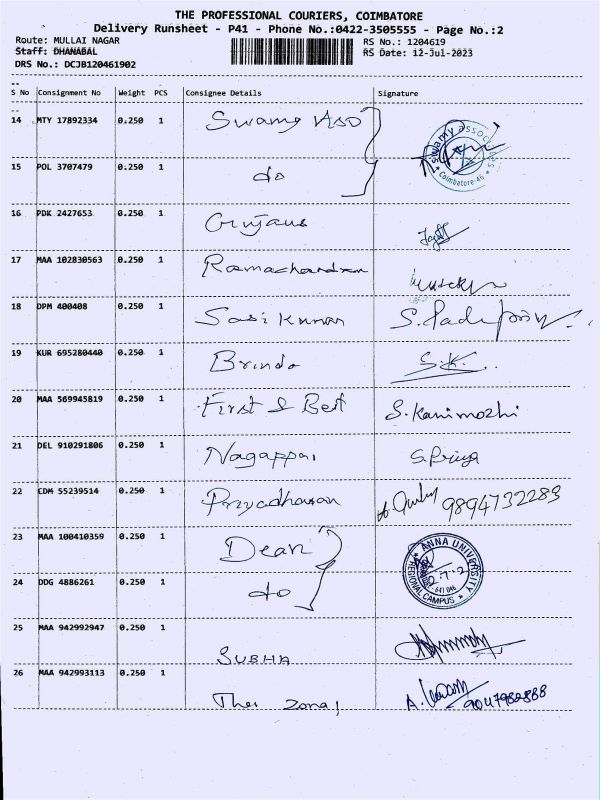 THE PROFESSIONAL COURIERS, COIMBATORE
Delivery Runsheet - P41 - Phone No.:0422-3505555 - Page No.:2
Route: MULLAI NAGAR
RS No.: 1204619
Staff: DHANABAL
RS Date: 12-Jul-2023
DRS No.: DCJB120461902
S No Consignment No Weight PCS Consignee Details Signature
14 MTY 17892334 0.250 1 Swamy Asso
SWAMY ASSOCIATES Coimbatore-46
15 POL 3707479 0.250 1 do
16 PDK 2427653 0.250 1
17 MAA 102830563 0.250 1 Ramachandran
18 DPM 400408 0.250 1 Sasi Kumar
19 KUR 695280440 0.250 1 Brinda S.K.
20 MAA 569945819 0.250 1 First & Best S.Kanimozhi
21 DEL 910291806 0.250 1 Nagappai S.Priya
22 CDM 55239514 0.250 1 Priyadharsan 9894732283
23 MAA 100410359 0.250 1 Dean
ANNA UNIVERSITY REGIONAL CAMPUS
24 DDG 4886261 0.250 1 do
25 MAA 942992947 0.250 1 SUBHA
26 MAA 942993113 0.250 1 The Zonal